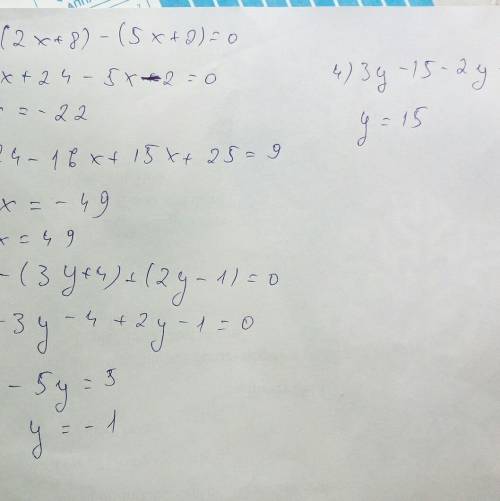 (2x+8)-(5x+2)=0
x+24-5x-2=0
x=-22
24-16x+15x+25=9
x=-49
x=49
-(3y+4)+(2y-1)=0
-3y-4+2y-1=0
-5y=5
y=-1
4)3y-15-2y
y=15